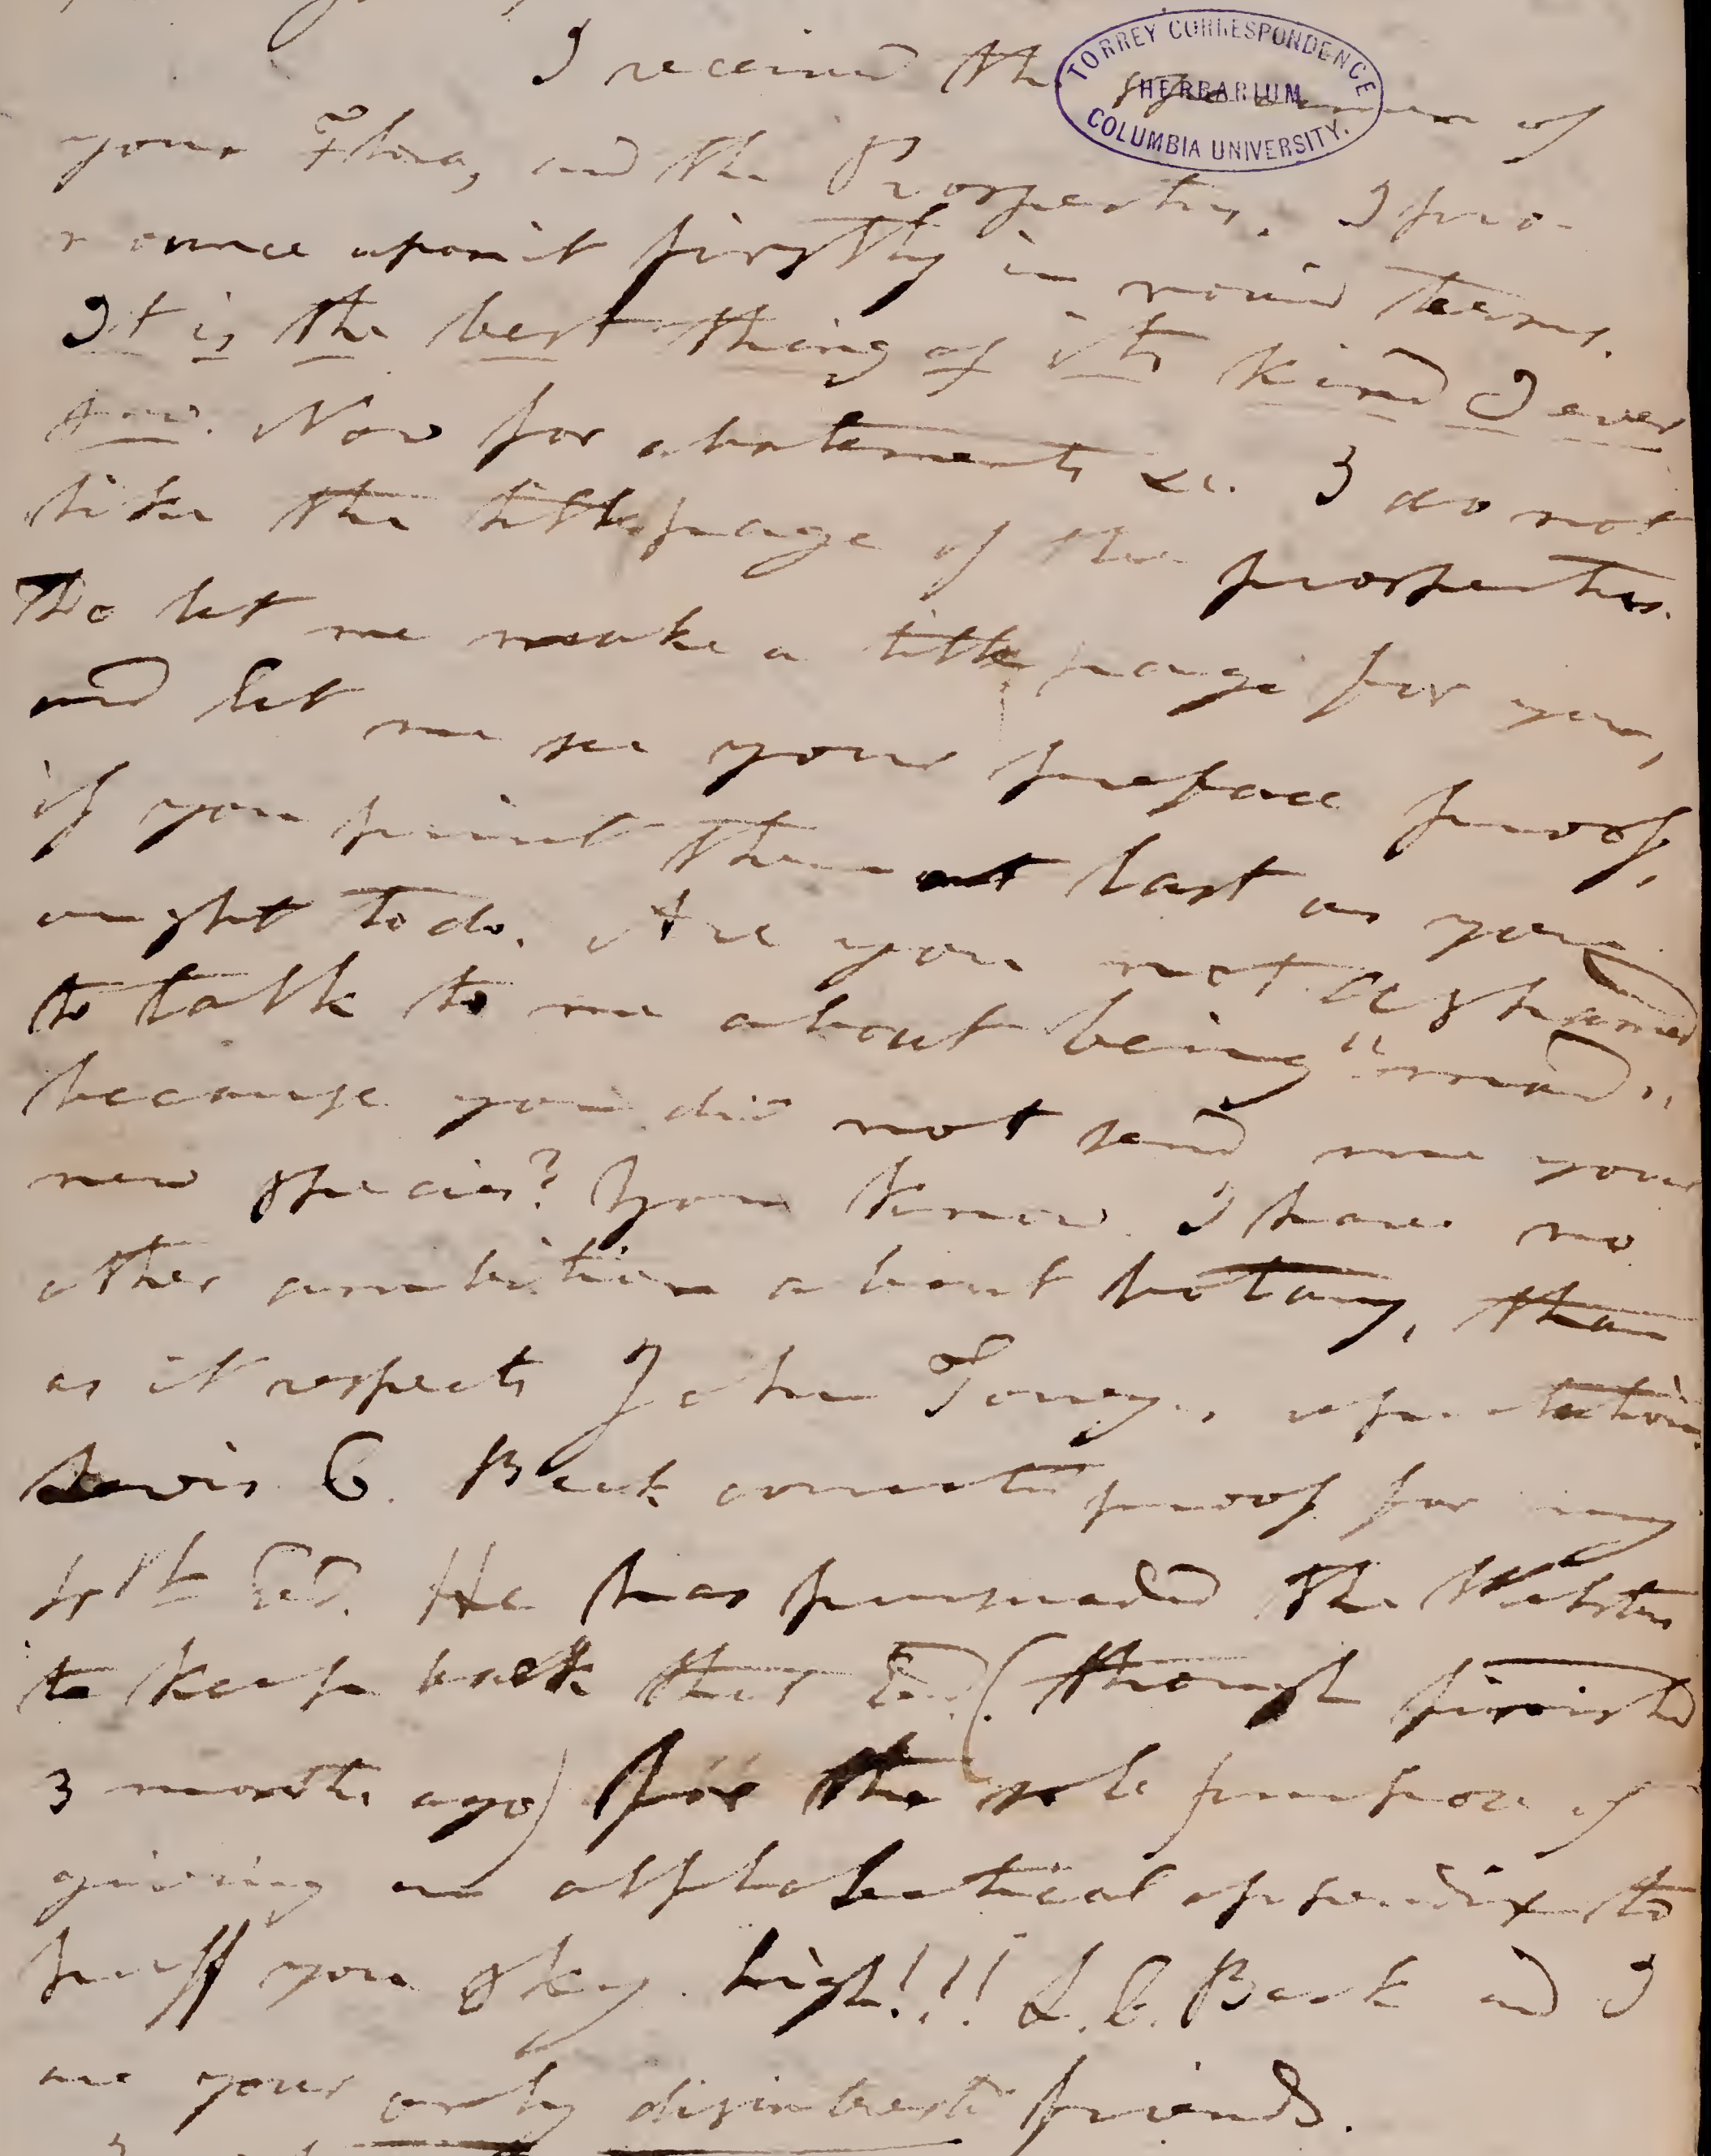 I received the specimen of
TORREY CORRESPONDENCE
HERBARIUM
COLUMBIA UNIVERSITY.
your Flora, and the Prospectus. I pro-
nounce upon it firstly in round terms.
It is the best thing of its kind I ever
saw. Now for abatements &c. I do not
like the titlepage of the prospectus.
Do let me make a title page for you,
and let me see your preface proof,
if you print them last as you
ought to do. Are you not ashamed
to talk to me about being "mad"
because you did not send me your
new species? You know I have no
other ambition about botany, than
as it respects John Torrey's reputation.
Lewis C. Beck corrects proof for my
4th Ed. He has persuaded the Websters
to keep back this Ed. (though finished
3 months ago) for the sole purpose of
giving an alphabetical appendix to
puff you sky high!!! L. C. Beck and I
are your only disinterested friends.